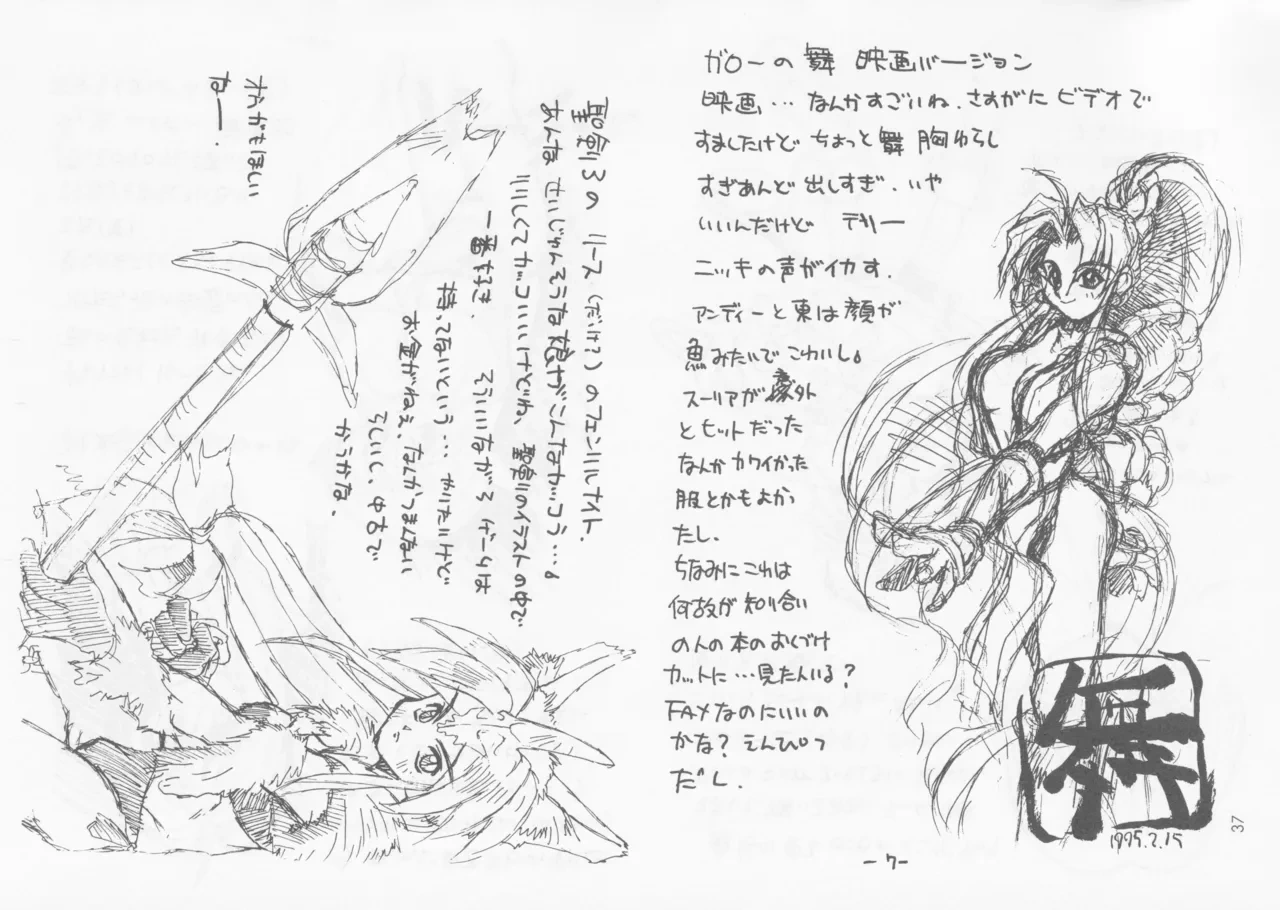 ガローの舞 映画バージョン
映画…なんかすごいね、さすがに ビデオで
すましたけど ちょっと舞 胸ゆらし
すぎあんど 出しすぎ、いや
いいんだけど テリー
ニッキの声がイカす、
アンディーと東は顔が
魚みたいで こわいし。
スーリアが意外
とヒットだった
なんかカワイかった
服とかもよかっ
たし、
ちなみにこれは
何故か知り合い
の人の本のおしづけ
カットに…見た人いる?
FAXなのにいいの
かな? えんぴつ
だし、
舞
1995.2.15
-7-
37
聖剣3の リース(だけ?)のフェンリルナイト、
あんな せいじゅんそうな娘がこんなカッコう…。
いいしくてカッコいいけどね、聖剣のイラストの中で
一番好き、 ていいながらゲームは
持ってないという… かりたいけど
お金がねえ、なんかつまんない
らしいし、中古で
かうかな、
オルガもほしい
ねー、